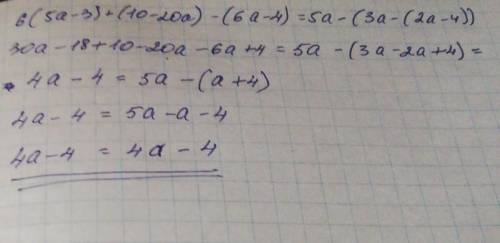 6(5a-3)+(10-20a)-(6a-4)=5a-(3a-(2a-4))
30a-18+10-20a-6a+4=5a-(3a-2a+4)=
4a-4=5a-(a+4)
4a-4=5a-a-4
4a-4=4a-4